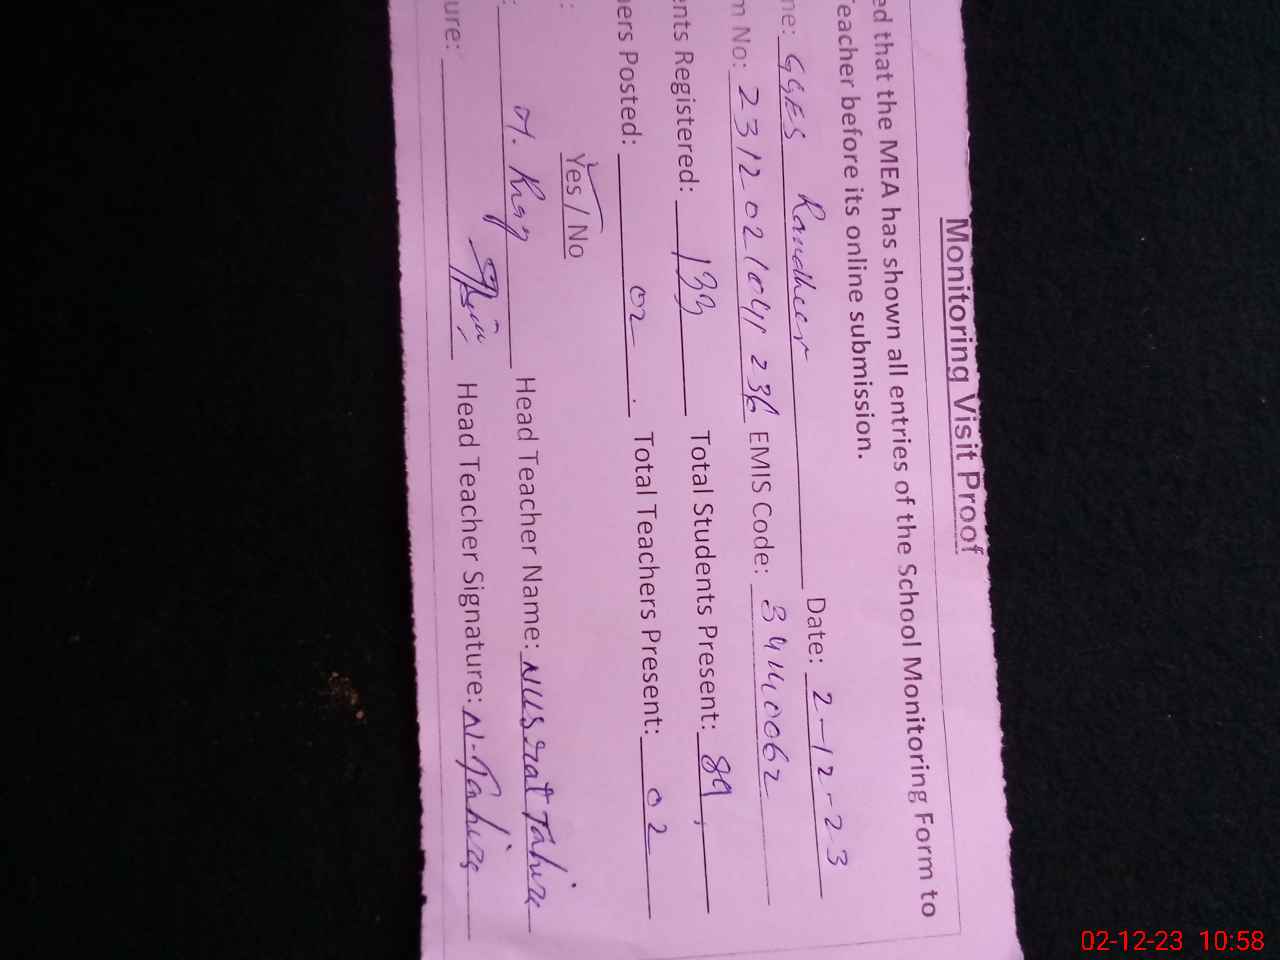 Monitoring Visit Proof
ed that the MEA has shown all entries of the School Monitoring Form to
eacher before its online submission.
me: GGES Randheer Date: 2-12-23
m No: 2312021041236 EMIS Code: 34140062
ents Registered: 133 Total Students Present: 89
ers Posted: 02 Total Teachers Present: 02
: Yes / No
: Head Teacher Name: Nusrat Tahira
ure: Head Teacher Signature: N-Tahira
02-12-23 10:58